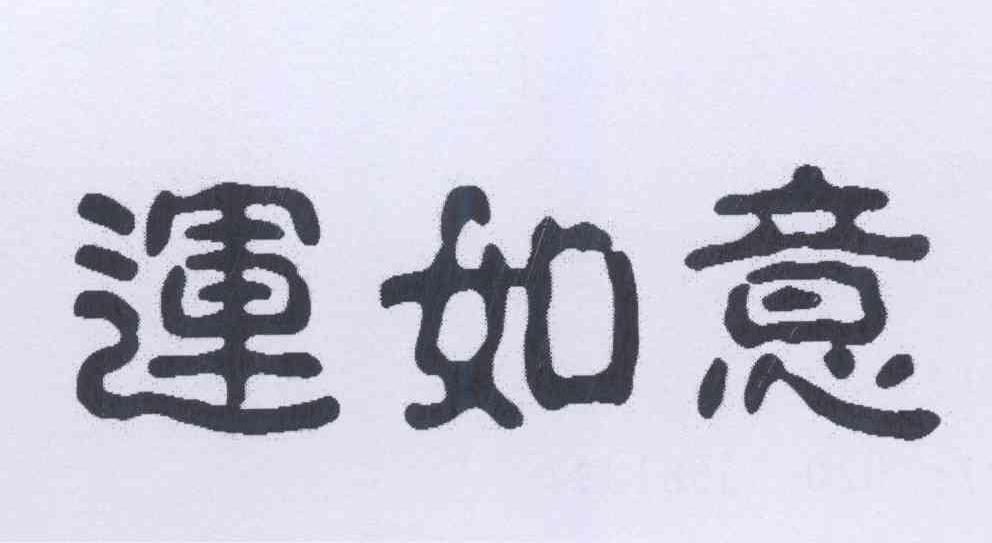 運如意